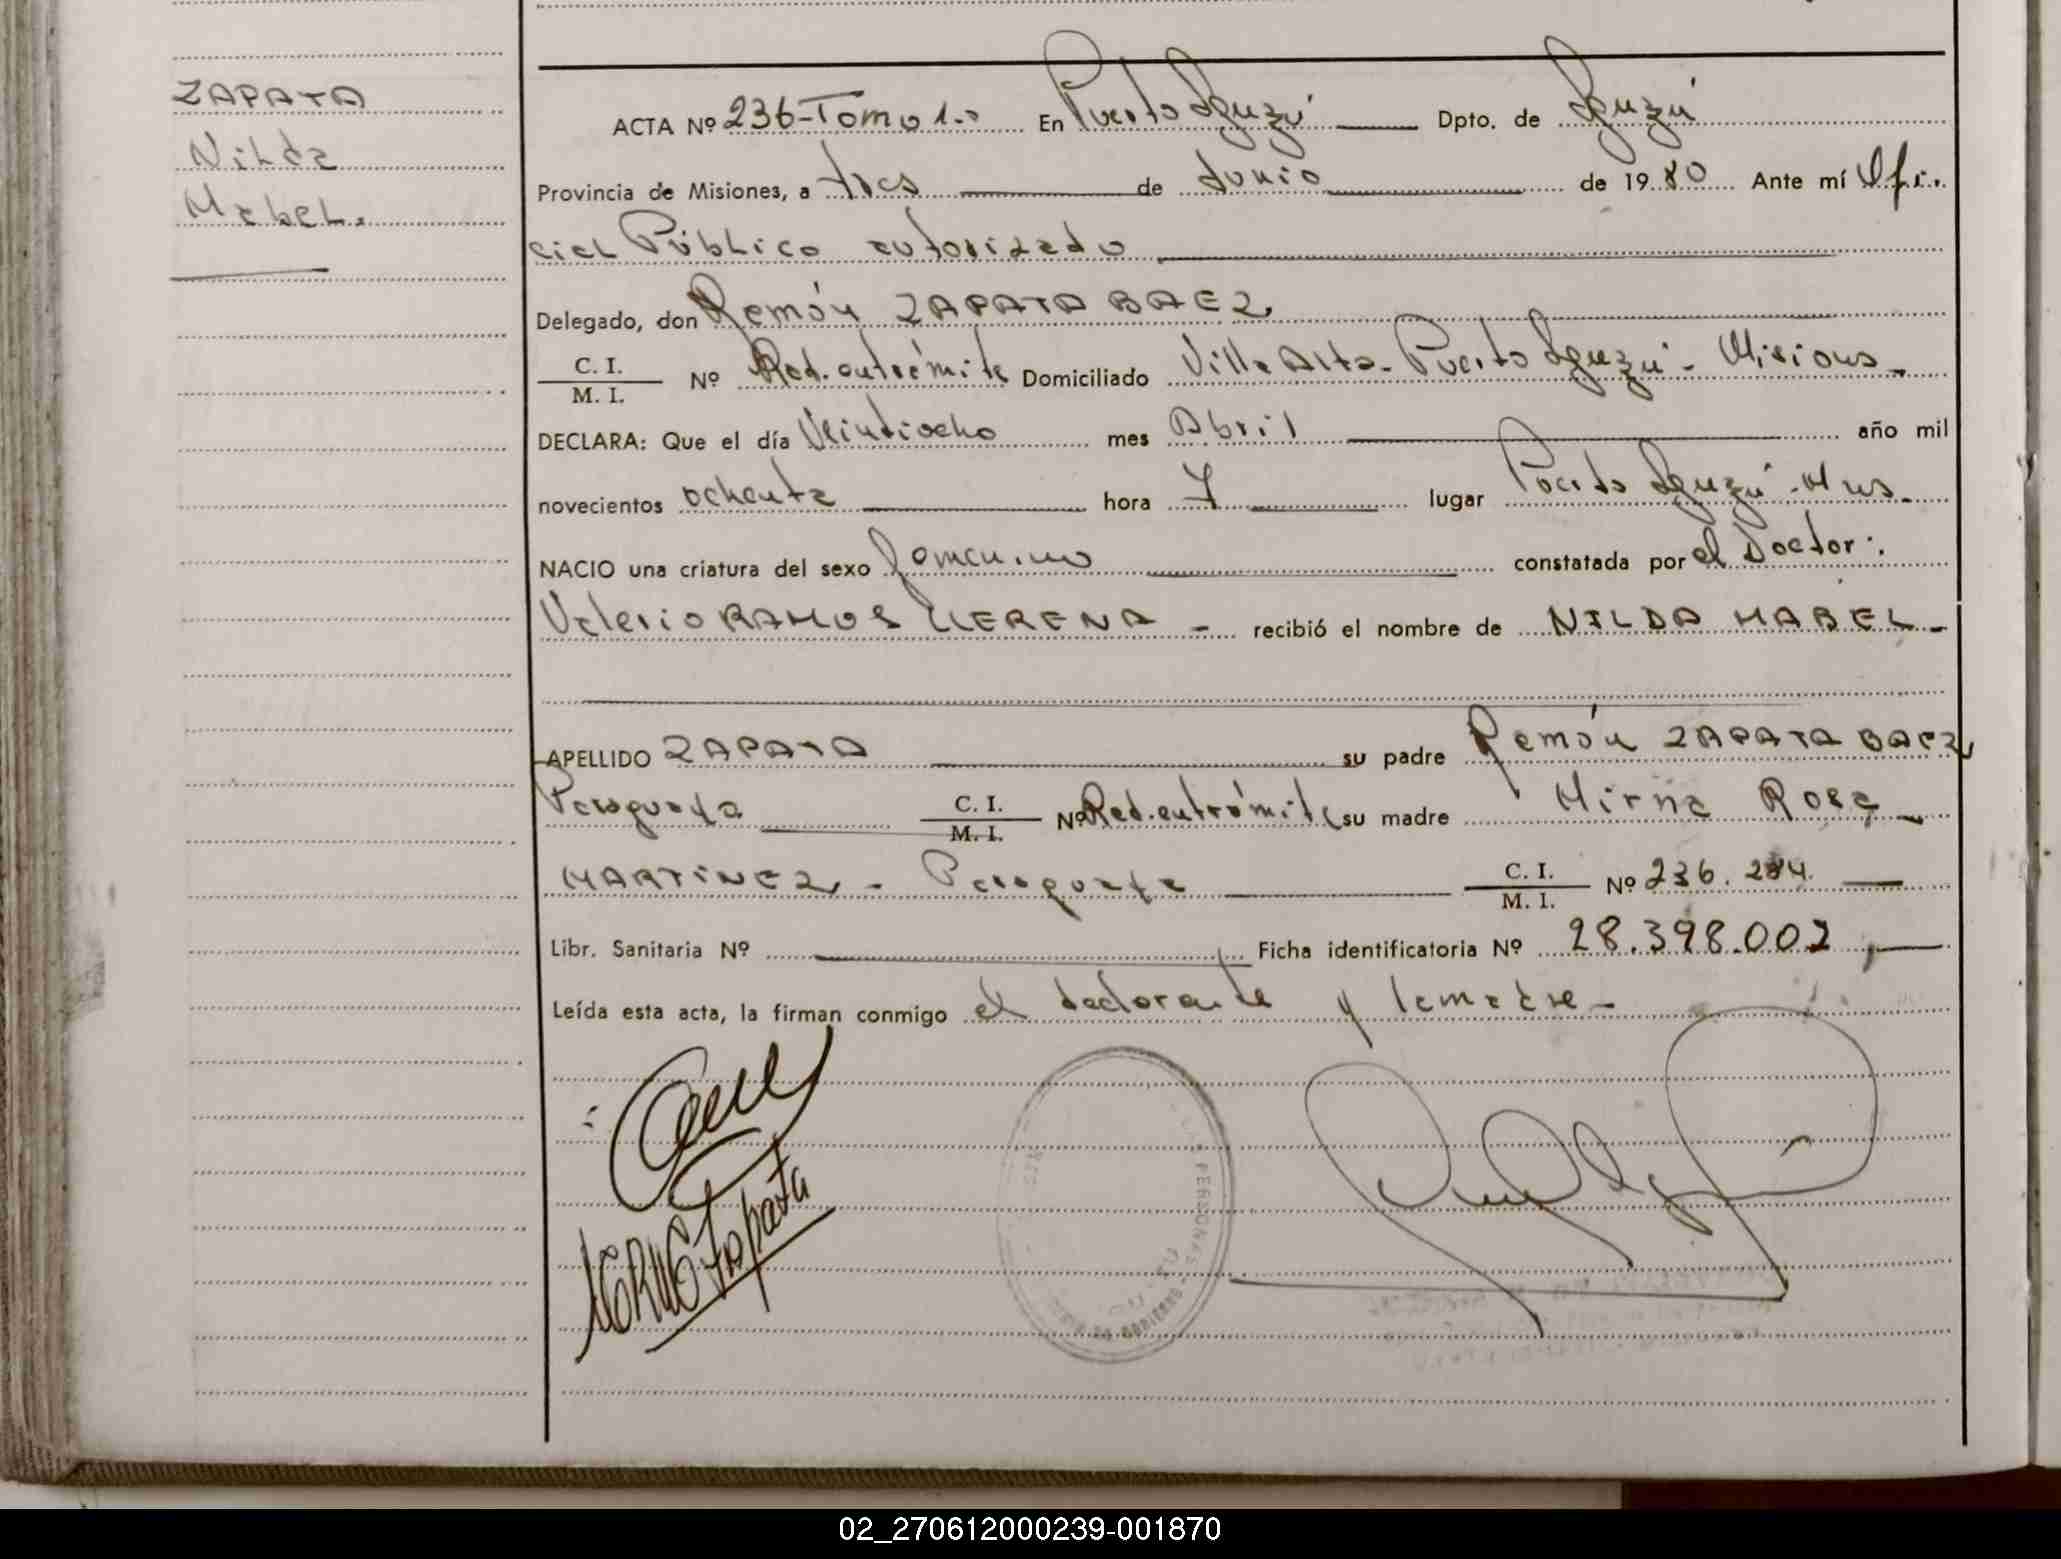 ZAPATA
Nilda
Mabel.
ACTA Nº 236-Tomo 1.º En Puerto Iguazú Dpto. de Iguazú
Provincia de Misiones, a tres de Junio de 1980 Ante mí Ofi.
cial Público autorizado
Delegado, don Ramón ZAPATA BAEZ
C. I.
M. I. Nº Rad. en trámite Domiciliado Villa Alta - Puerto Iguazú - Misiones
DECLARA: Que el día Veintiocho mes Abril año mil
novecientos ochenta hora 7 lugar Puerto Iguazú - Mnes.
NACIO una criatura del sexo femenino constatada por el Doctor:
Valerio RAMOS LLERENA - recibió el nombre de NILDA MABEL -
APELLIDO ZAPATA su padre Ramón ZAPATA BAEZ
Paraguaya C. I.
M. I. Nº Rad. en trámite su madre Mirna Rosa
MARTINEZ - Paraguaya C. I.
M. I. Nº 236.
Libr. Sanitaria Nº Ficha identificatoria Nº 28.398.002
Leída esta acta, la firman conmigo el declarante y la madre -
Zapata
PERSONAS
DE GOBIERNO
02_270612000239-001870